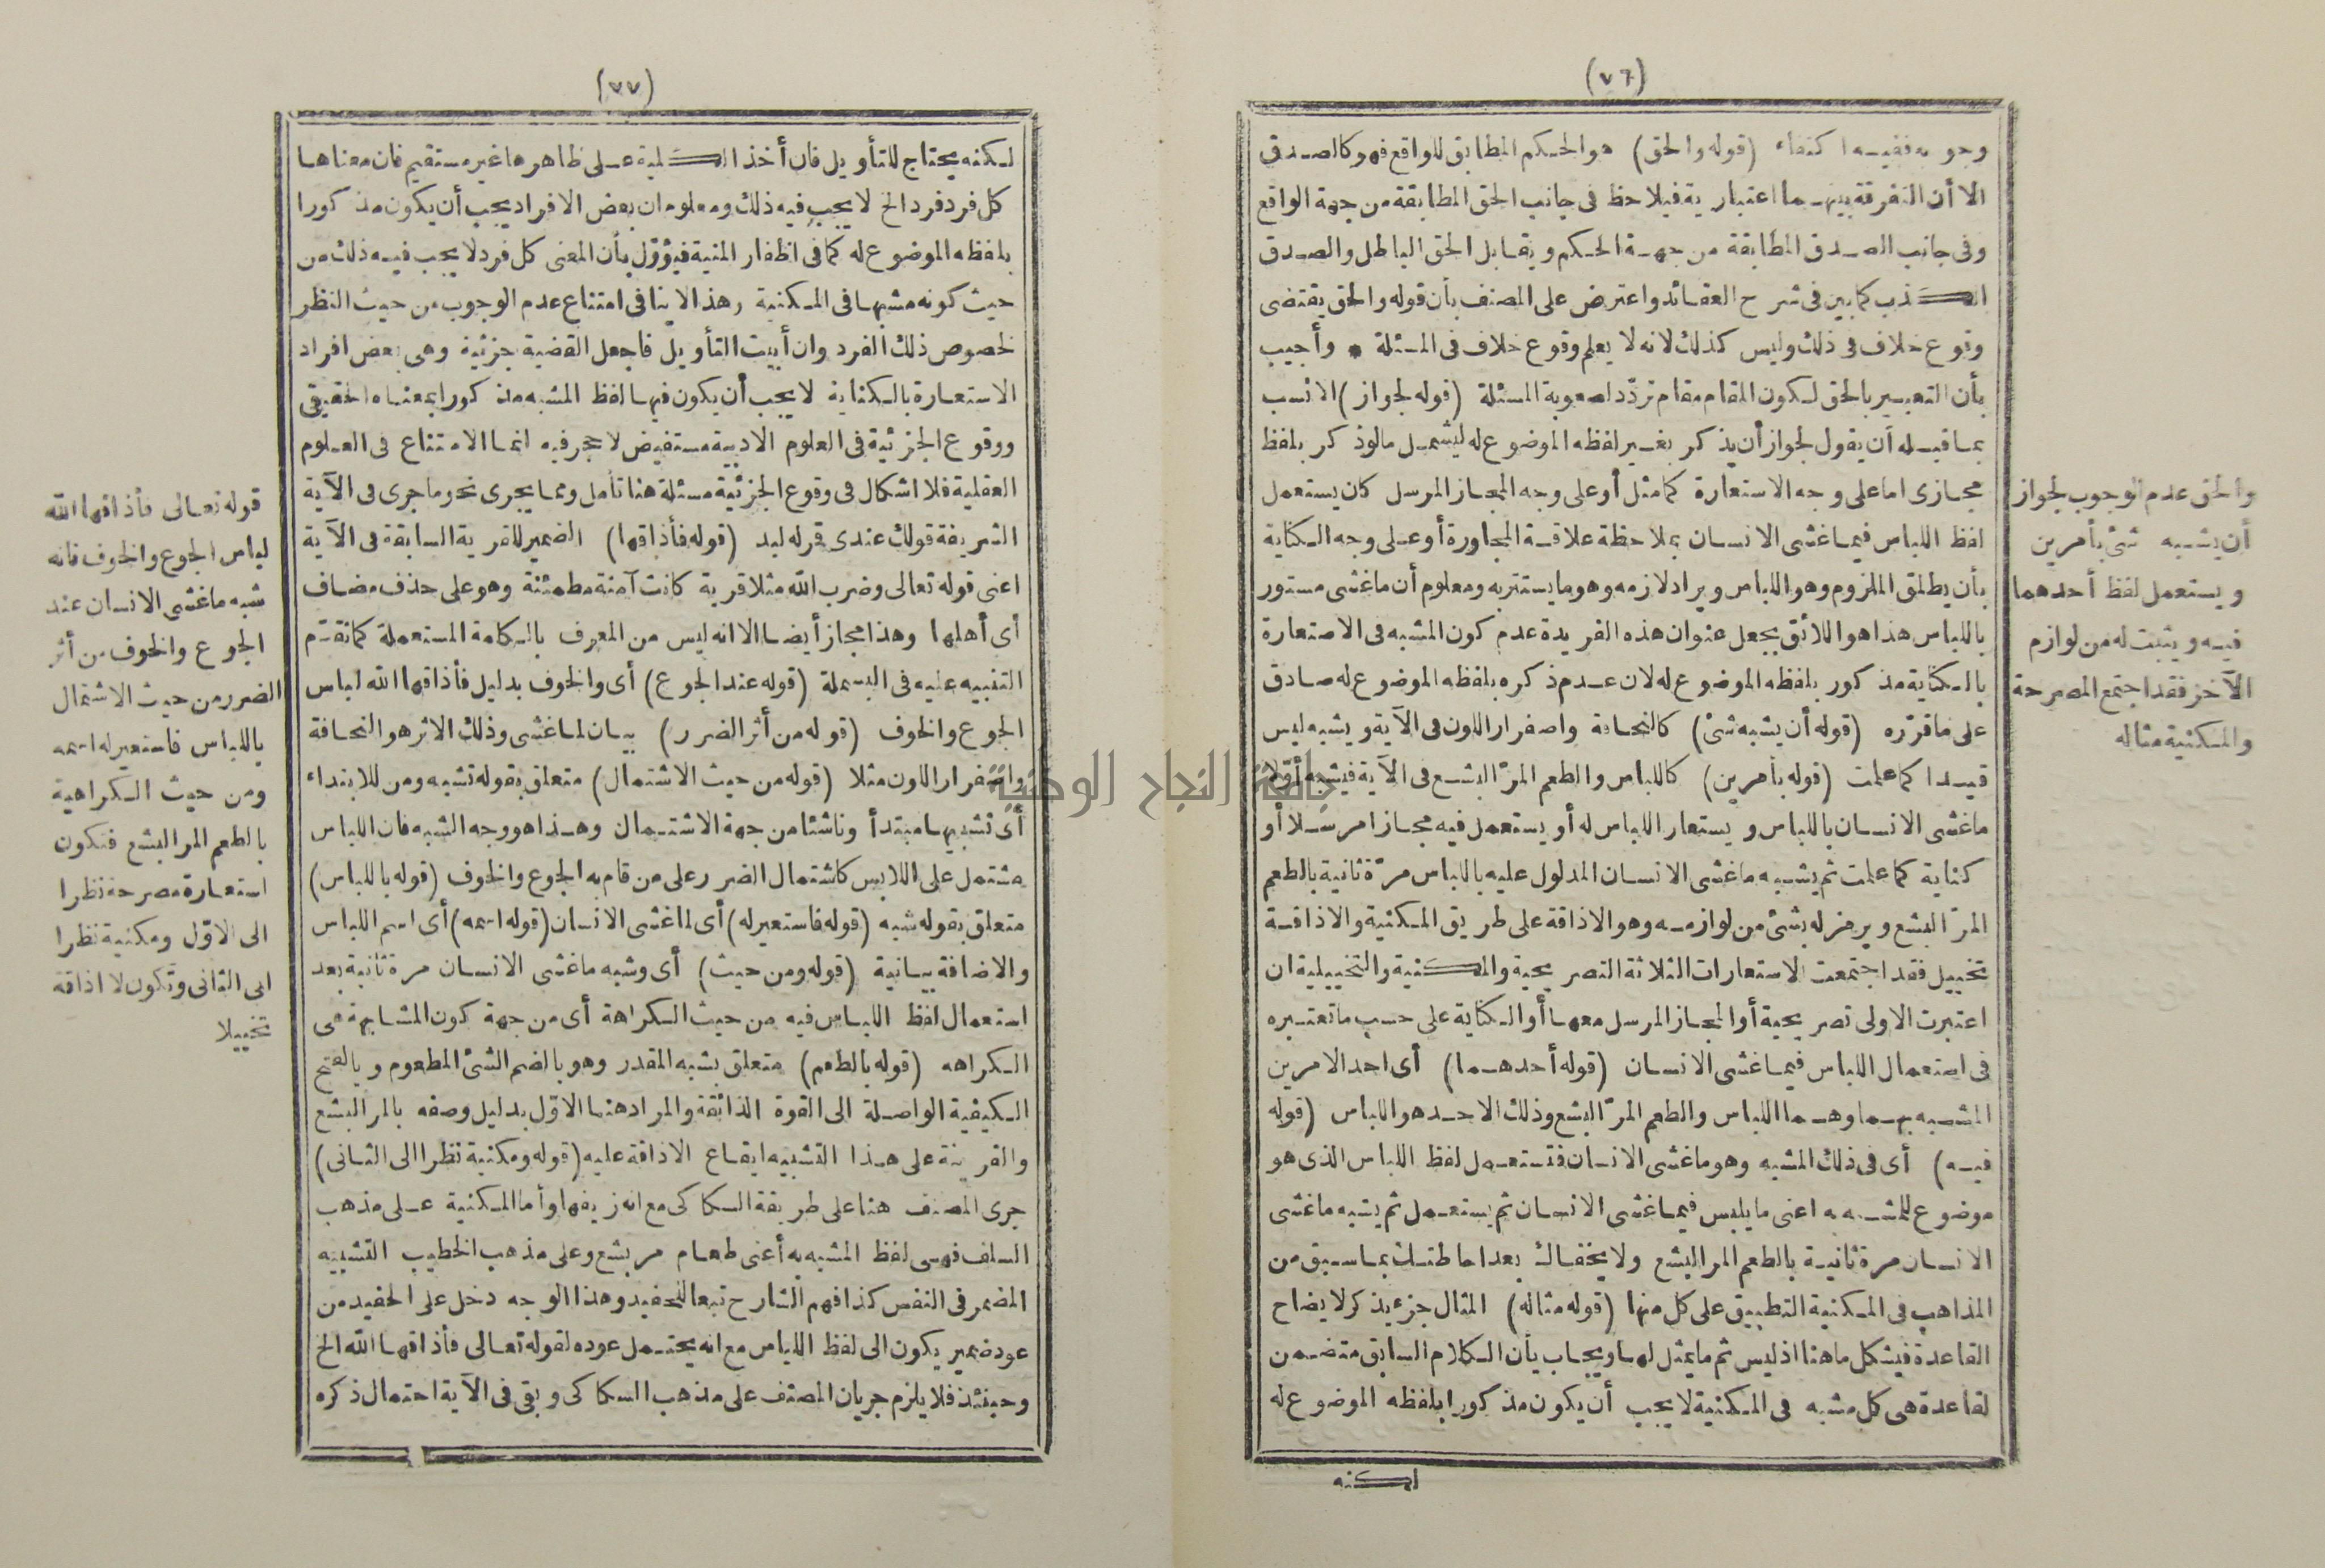 (٧٦)
وجوبه ففيه اكتفاء (قوله والحق) هو الحكم المطابق للواقع فهو كالصدق
الا أن التفرقة بينهما اعتبارية فيلاحظ فى جانب الحق المطابقة من جهة الواقع
وفى جانب الصدق المطابقة من جهة الحكم ويقابل الحق الباطل والصدق
الكذب كما بين فى شرح العقائد واعترض على المصنف بأن قوله والحق يقتضى
وقوع خلاف فى ذلك وليس كذلك لانه لا يعلم وقوع خلاف فى المسئلة * وأجيب
بأن التعبير بالحق لكون المقام مقام تردّد لصعوبة المسئلة (قوله لجواز) الانسب
بما قبله أن يقول لجواز أن يذكر بغير لفظه الموضوع له ليشمل ما لو ذكر بلفظ
مجازى اما على وجه الاستعارة كما مثل أو على وجه المجاز المرسل كان يستعمل
لفظ اللباس فيما غشى الانسان بملاحظة علاقة المجاورة أو على وجه الكناية
بأن يطلق الملزوم وهو اللباس ويراد لازمه وهو ما يستتر به ومعلوم أن ما غشى مستور
باللباس هذا هو اللائق بجعل عنوان هذه الفريدة عدم كون المشبه فى الاستعارة
بالكناية مذكور بلفظه الموضوع له لان عدم ذكره بلفظه الموضوع له صادق
على ما قرّره (قوله أن يشبه شئ) كالنحافة واصفرار اللون فى الآية ويشبه ليس
قيدا كما علمت (قوله بأمرين) كاللباس والطعم المرّ البشع فى الآية فيشبه أوّلا
ما غشى الانسان باللباس ويستعار اللباس له أو يستعمل فيه مجازا مرسلا أو
كناية كما علمت ثم يشبه ما غشى الانسان المدلول عليه باللباس مرّة ثانية بالطعم
المرّ البشع ويرمز له بشئ من لوازمه وهو الاذاقة على طريق المكنية والاذاقة
تخييل فقد اجتمعت الاستعارات الثلاثة التصريحية والمكنية والتخييلية ان
اعتبرت الاولى تصريحية أو المجاز المرسل معهما أو الكناية على حسب ما تعتبره
فى استعمال اللباس فيما غشى الانسان (قوله أحدهما) أى احد الامرين
المشبه بهما وهما اللباس والطعم المرّ البشع وذلك الاحد هو اللباس (قوله
فيه) أى فى ذلك المشبه وهو ما غشى الانسان فتستعمل لفظ اللباس الذى هو
موضوع للمشبه به اعنى ما يلبس فيما غشى الانسان ثم يستعمل ثم يشبه ما غشى
الانسان مرة ثانية بالطعم المر البشع ولا يخفاك بعد احاطتك بما سبق من
المذاهب فى المكنية التطبيق على كل منها (قوله مثاله) المثال جزء يذكر لايضاح
القاعدة فيشكل ما هنا اذ ليس ثم ما يمثل لها ويجاب بأن الكلام السابق متضمن
لقاعدة هى كل مشبه فى المكنية لا يجب أن يكون مذكورا بلفظه الموضوع له
لكنه
والحق عدم الوجوب لجواز
أن يشبه شئ بأمرين
ويستعمل لفظ أحدهما
فيه ويثبت له من لوازم
الآخر فقد اجتمع المصرحة
والمكنية مثاله
(٧٧)
لكنه يحتاج للتأويل فان أخذ الكلية على ظاهرها غير مستقيم فان معناها
كل فرد فرد الخ لا يجب فيه ذلك ومعلوم ان بعض الافراد يجب أن يكون مذكورا
بلفظه الموضوع له كما فى اظفار المنية فيؤوّل بأن المعنى كل فرد لا يجب فيه ذلك من
حيث كونه مشبها فى المكنية وهذا لا ينافى امتناع عدم الوجوب من حيث النظر
لخصوص ذلك الفرد وان أبيت التأويل فاجعل القضية جزئية وهى بعض افراد
الاستعارة بالكناية لا يجب أن يكون فيها لفظ المشبه مذكورا بمعناه الحقيقى
ووقوع الجزئية فى العلوم الادبية مستفيض لا حجر فيه انما الامتناع فى العلوم
العقلية فلا اشكال فى وقوع الجزئية مسئلة هنا تأمل ومما يجرى نحو ما جرى فى الآية
الشريفة قولك عندى قوله لبد (قوله فأذاقها) الضمير للقرية السابقة فى الآية
اعنى قوله تعالى وضرب الله مثلا قرية كانت آمنة مطمئنة وهو على حذف مضاف
أى أهلها وهذا مجاز أيضا الا انه ليس من المعرف بالكلمة المستعملة كما تقدّم
التنبيه عليه فى البسملة (قوله عند الجوع) أى والخوف بدليل فأذاقها الله لباس
الجوع والخوف (قوله من أثر الضرر) بيان لما غشى وذلك الاثر هو النحافة
واصفرار اللون مثلا (قوله من حيث الاشتمال) متعلق بقوله تشبه ومن للابتداء
أى تشبيها مبتدأ وناشئا من جهة الاشتمال وهذا هو وجه الشبه فان اللباس
مشتمل على اللابس كاشتمال الضرر على من قام به الجوع والخوف (قوله باللباس)
متعلق بقوله شبه (قوله فاستعير له) أى لما غشى الانسان (قوله اسمه) أى اسم اللباس
والاضافة بيانية (قوله ومن حيث) أى وشبه ما غشى الانسان مرة ثانية بعد
استعمال لفظ اللباس فيه من حيث الكراهة أى من جهة كون المشابهة هى
الكراهه (قوله بالطعم) متعلق بشبه المقدر وهو بالضم الشئ المطعوم وبالفتح
الكيفية الواصلة الى القوة الذائقة والمراد هنا الاوّل بدليل وصفه بالمر البشع
والقرينة على هذا التشبيه ايقاع الاذاقة عليه (قوله ومكنية نظرا الى الثانى)
جرى المصنف هنا على طريقة السكاكى مع انه زيفها وأما المكنية على مذهب
السلف فهى لفظ المشبه به أعنى طعام مر بشع وعلى مذهب الخطيب التشبيه
المضمر فى النفس كذا فهم الشارح تبعا للحفيد وهذا الوجه دخل على الحفيد من
عود ضمير يكون الى لفظ اللباس مع انه يحتمل عوده لقوله تعالى فأذاقها الله الخ
وحينئذ فلا يلزم جريان المصنف على مذهب السكاكى وبقى فى الآية احتمال ذكره
قوله تعالى فأذاقها الله
لباس الجوع والخوف فانه
شبه ما غشى الانسان عند
الجوع والخوف من أثر
الضرر من حيث الاشتمال
باللباس فاستعير له اسمه
ومن حيث الكراهية
بالطعم المر البشع فتكون
استعارة مصرحة نظرا
الى الاوّل ومكنية نظرا
الى الثانى وتكون لا اذاقة
تخييلا
جامعة النجاح الوطنية